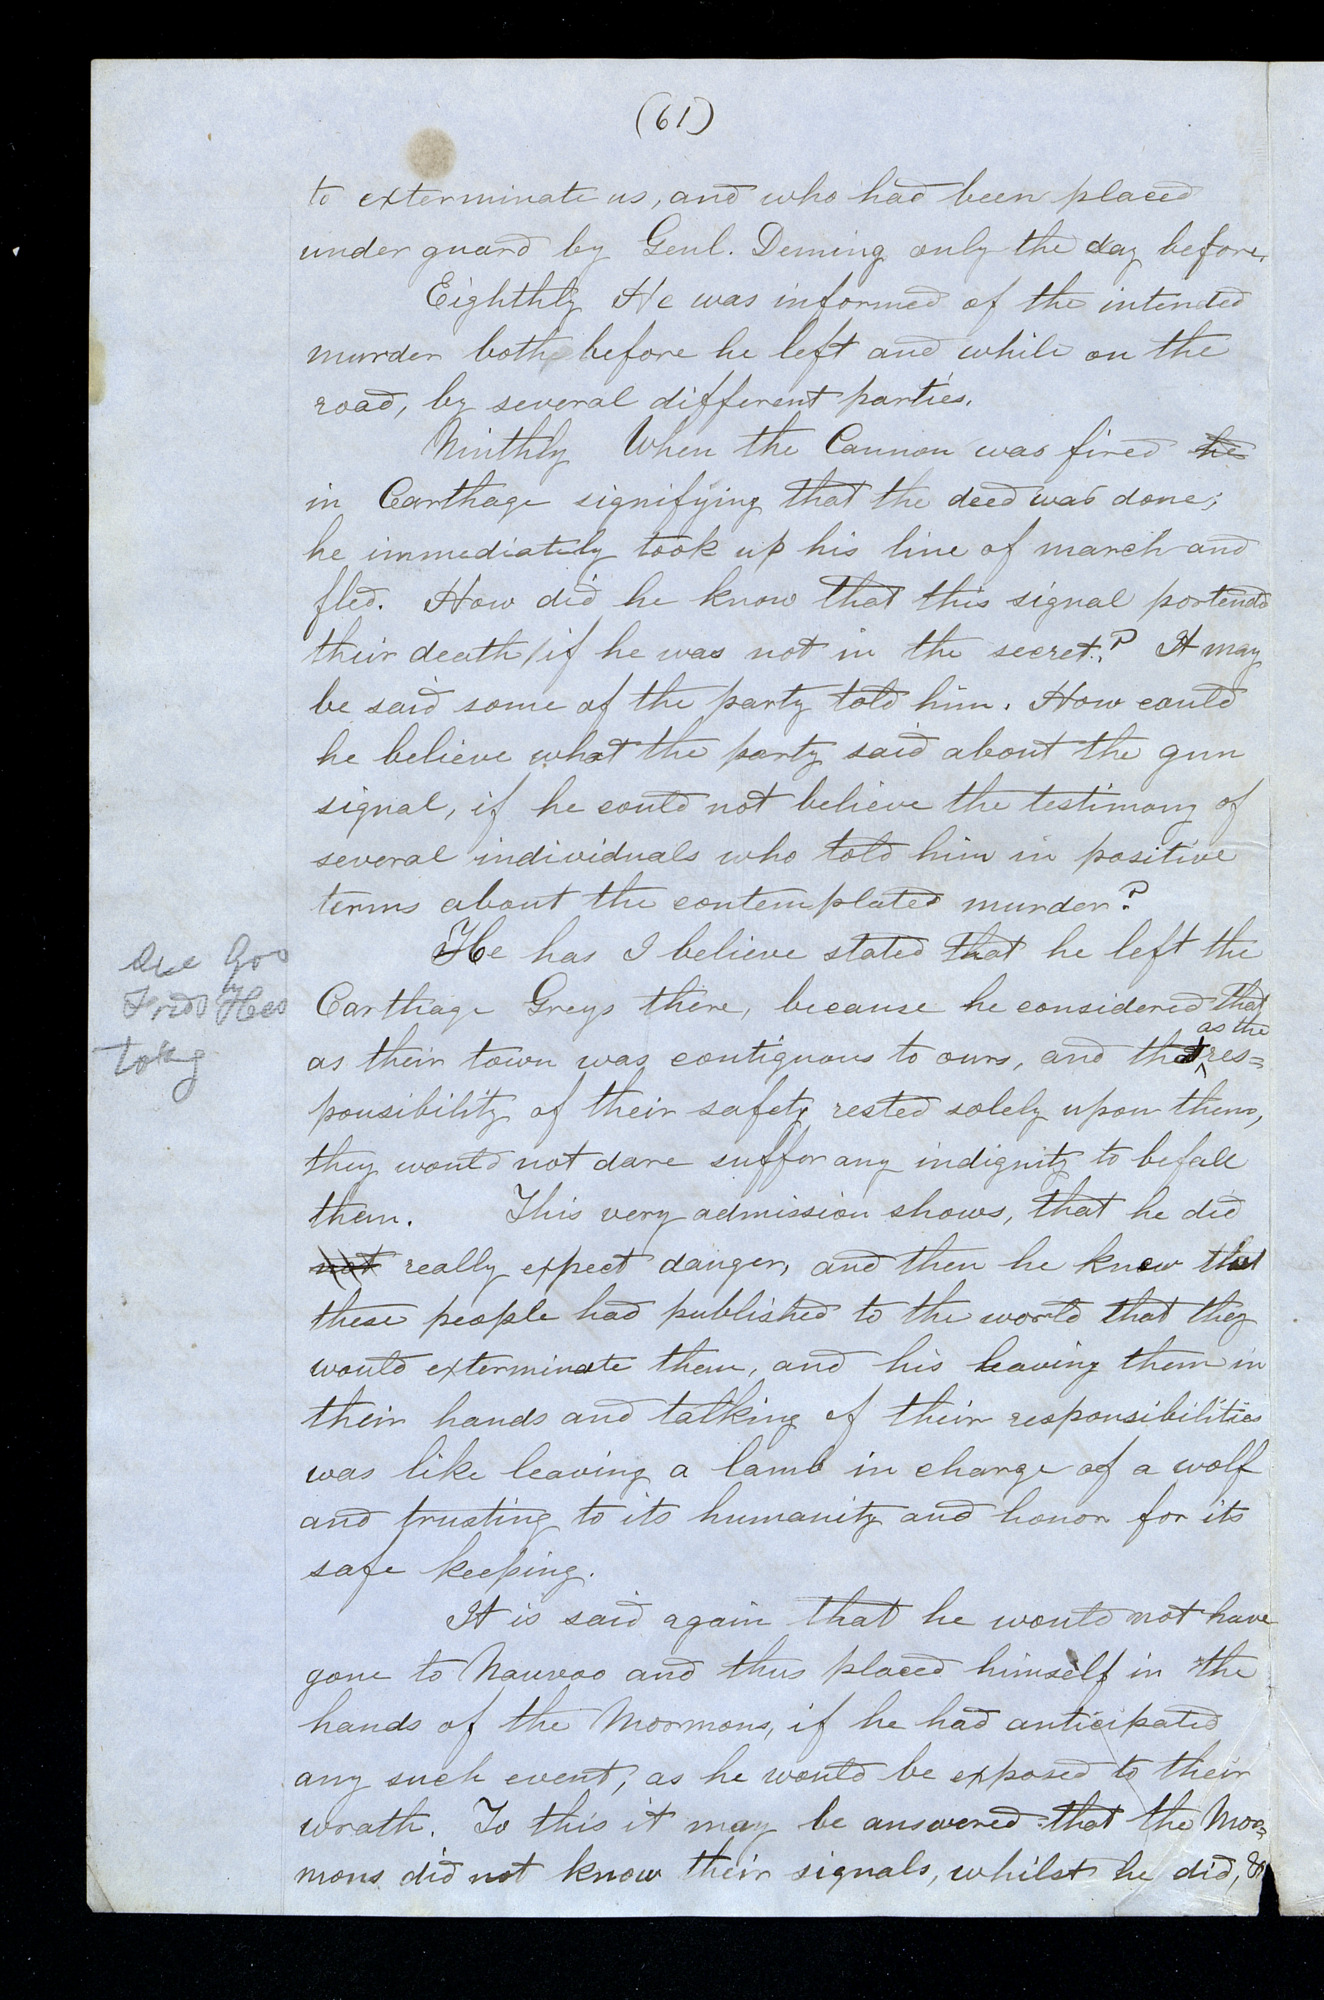 (61)
to exterminate us, and who had been placed
under guard by Genl. Deming only the day before.
Eighthly He was informed of the intended
murder both before he left and while on the
road, by several different parties.
Ninthly When the Cannon was fired he
in Carthage signifying that the deed was done;
he immediately took up his line of march and
fled. How did he know that this signal portended
their death, if he was not in the secret? It may
be said some of the party told him. How could
he believe what the party said about the gun
signal, if he could not believe the testimony of
several individuals who told him in positive
terms about the contemplated murder?
He has I believe stated that he left the
Carthage Greys there, because he considered that
as the
as their town was contiguous to ours, and that res=
ponsibility of their safety rested solely upon them,
they would not dare suffer any indignity to befall
them. This very admission shows, that he did
not really expect danger, and then he knew that
these people had published to the world that they
would exterminate them, and his leaving them in
their hands and talking of their responsibilities
was like leaving a lamb in charge of a wolf
and trusting to its humanity and honor for its
safe keeping.
It is said again that he would not have
gone to Nauvoo and thus placed himself in the
hands of the Mormons, if he had anticipated
any such event, as he would be exposed to their
wrath. To this it may be answered that the Mor=
mons did not know their signals, whilst he did, &